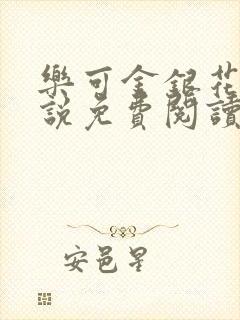 樂可金銀花
說免費閱讀
安邑星